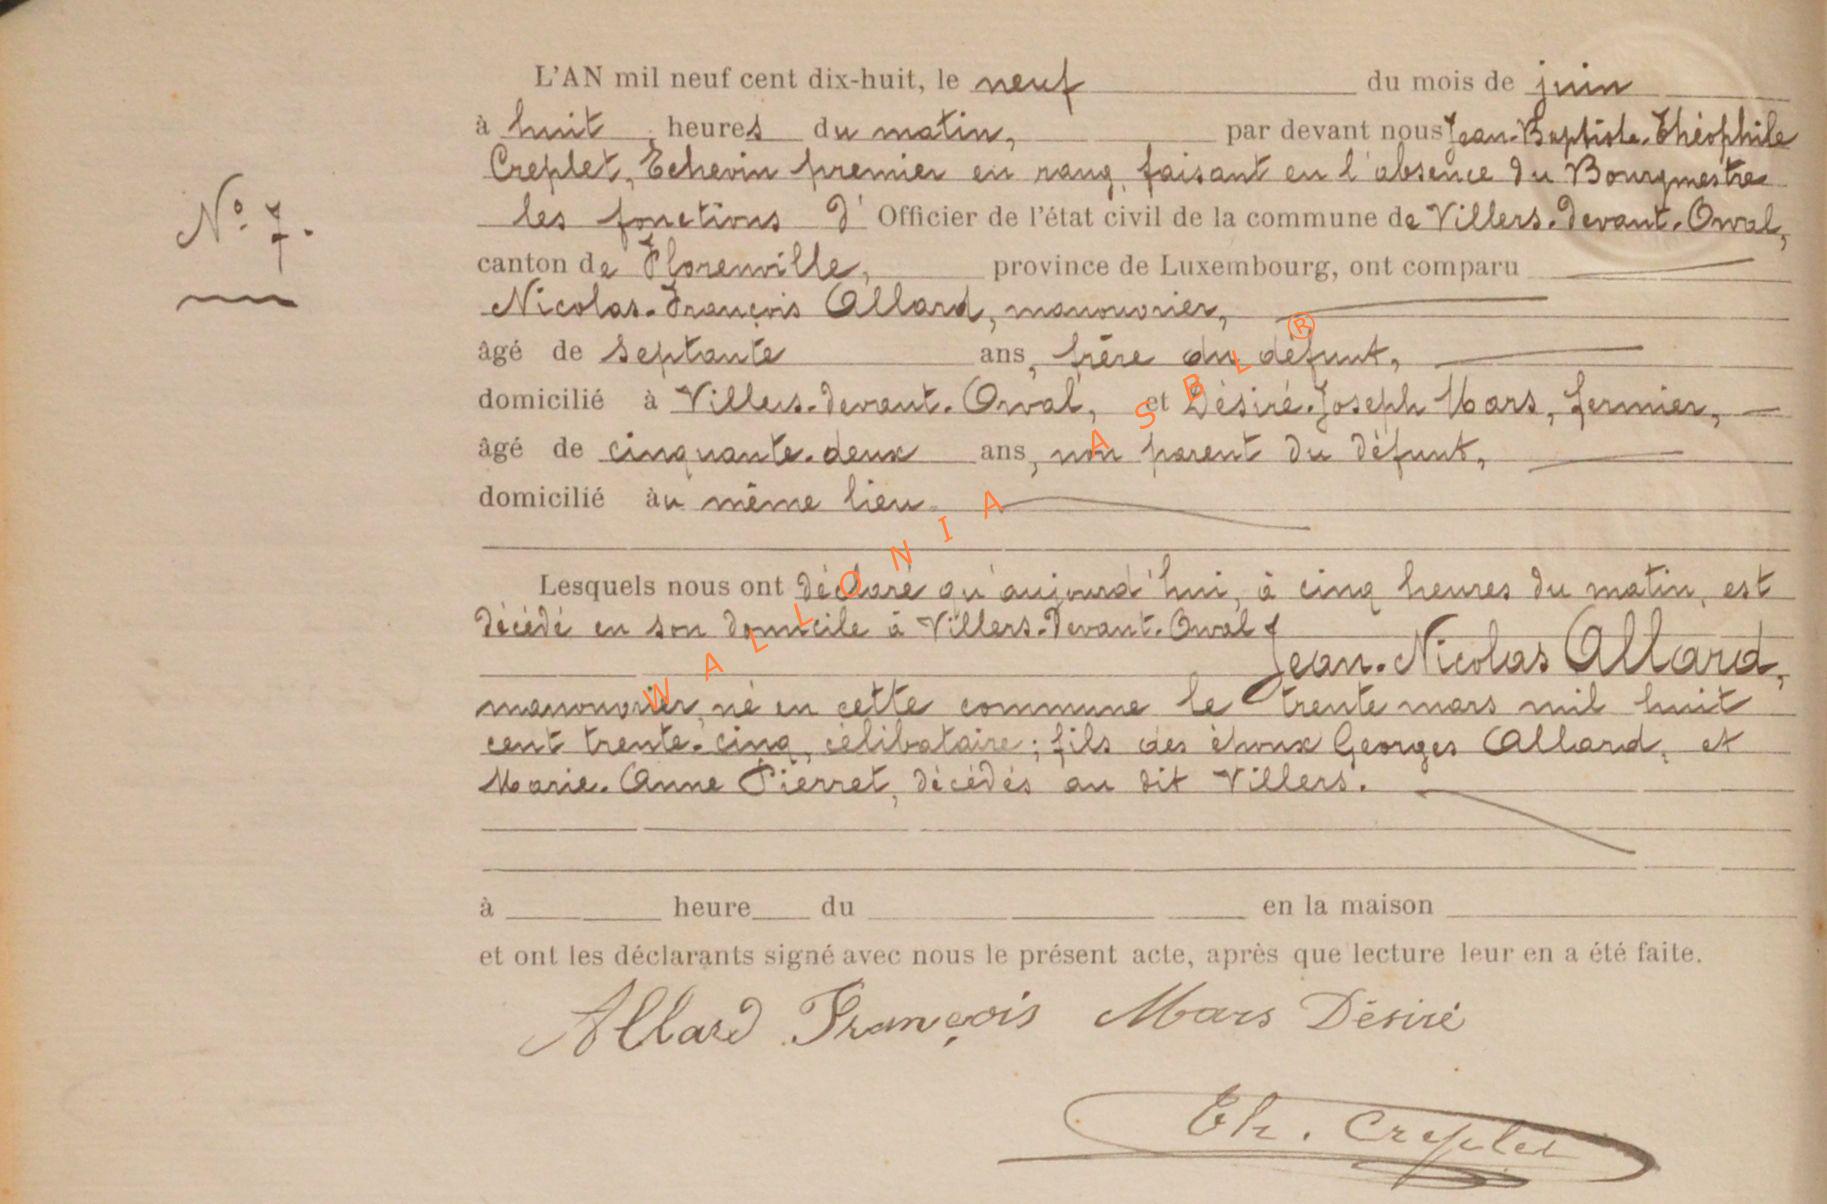 L'AN mil neuf cent dix-huit, le neuf du mois de juin
à huit heures du matin, par devant nous Jean-Baptiste-Théophile
Creplet, Echevin premier en rang, faisant en l'absence du Bourgmestre
les fonctions d'Officier de l'état civil de la commune de Villers-devant-Orval,
N° 7.
canton de Florenville, province de Luxembourg, ont comparu
Nicolas-François Allard, manouvrier,
âgé de septante ans, frère du défunt,
domicilié à Villers-devant-Orval, et Désiré-Joseph Mars, fermier,
âgé de cinquante-deux ans, non parent du défunt,
domicilié au même lieu
Lesquels nous ont déclaré qu'aujourd'hui, à cinq heures du matin, est
décédé en son domicile à Villers-devant-Orval
Jean-Nicolas Allard,
manouvrier, né en cette commune le trente mars mil huit
cent trente-cinq, célibataire; fils des époux Georges Allard, et
Marie-Anne Pierret, décédés au dit Villers.
à heure du en la maison
et ont les déclarants signé avec nous le présent acte, après que lecture leur en a été faite.
Allard François Mars Désiré
Th. Creplet
WALLONIA ASBL ®